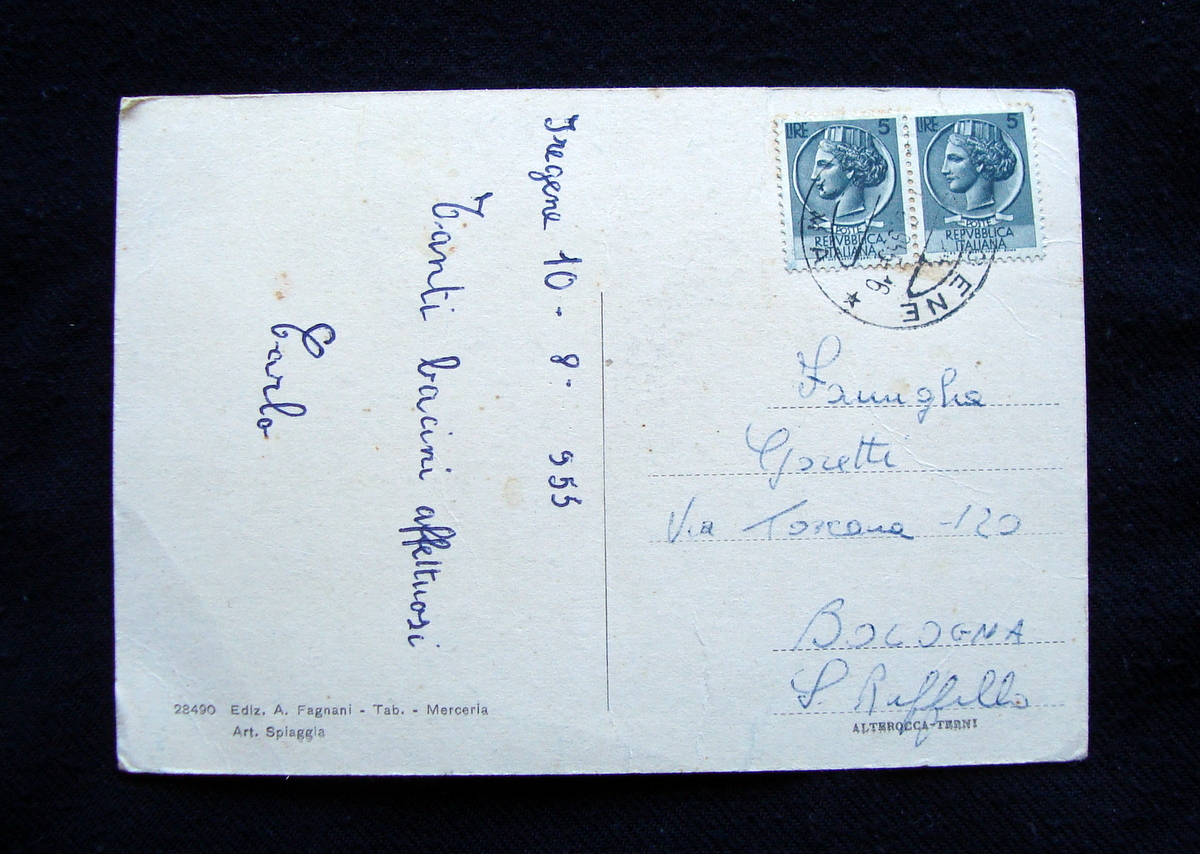 Fregene 10 - 8 - 955
Tanti bacini affettuosi
Carlo
28490 Ediz. A. Fagnani - Tab. - Merceria
Art. Spiaggia
LIRE 5
POSTE
REPVBBLICA
ITALIANA
LIRE 5
POSTE
REPVBBLICA
ITALIANA
ENE
Famiglia
Goretti
Via Toscana - 120
BOLOGNA
S. Ruffillo
ALTEROCCA-TERNI